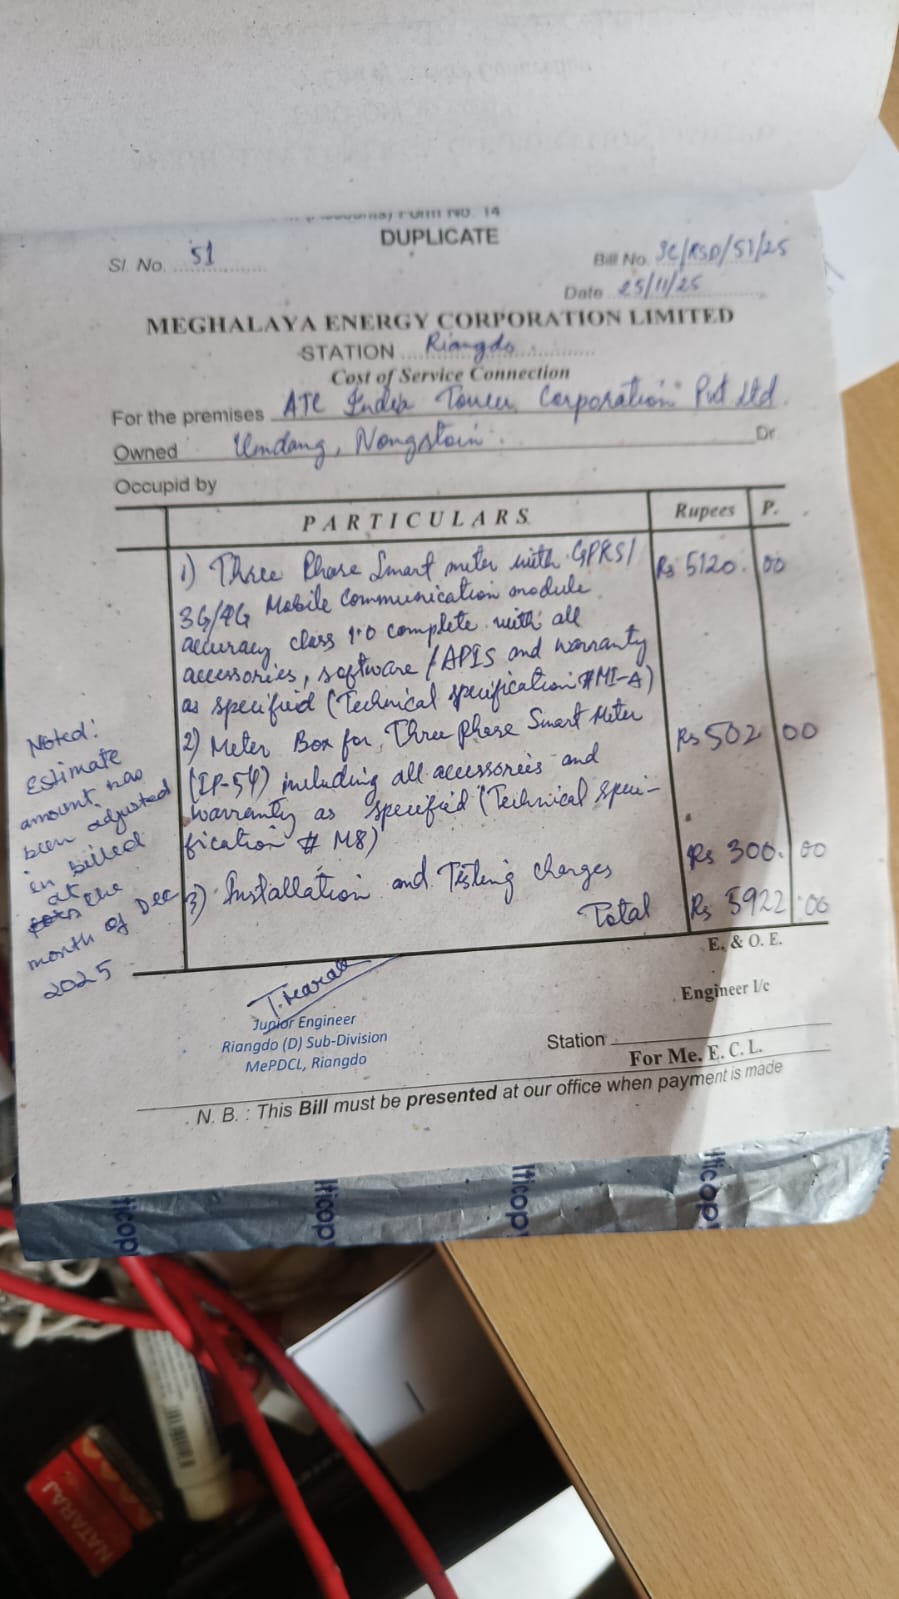 (Accounts) Form No. 14
DUPLICATE
Sl. No. 51
Bill No. SC/RSD/51/25
Date 25/11/25
MEGHALAYA ENERGY CORPORATION LIMITED
STATION Riangdo
Cost of Service Connection
For the premises ATC India Tower Corporation Pvt Ltd.
Owned Umdang, Nongstoin. Dr
Occupid by
PARTICULARS Rupees P.
1) Three Phase Smart meter with GPRS/ Rs 5120. 00
3G/4G Mobile Communication module
accuracy class 1.0 complete with all
accessories, software/APIS and warranty
as specified (Technical specification #MI-A)
2) Meter Box for Three phase Smart Meter Rs 502 00
(IP-54) including all accessories and
warranty as specified (Technical speci-
fication # M8)
3) Installation and Testing charges Rs 300. 00
Total Rs 5922.00
Noted:
Estimate
amount has
been adjusted
in billed
at
the
month of Dec
2025
E. & O. E.
Engineer I/c
Junior Engineer
Riangdo (D) Sub-Division
MePDCL, Riangdo
Station
For Me. E. C. L.
N. B. : This Bill must be presented at our office when payment is made
lticop
lticop
lticop
lticop
NATARAJ